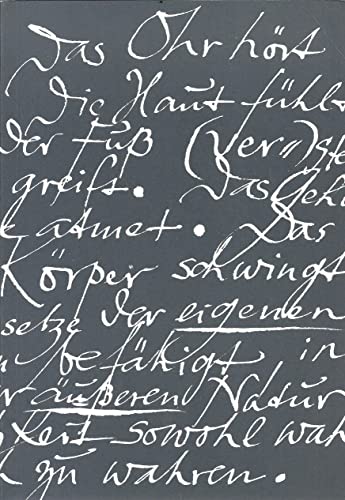 Das Ohr hört
Die Haut fühlt
der Fuß (ver")ste
greift. Das Geh
atmet. Das
Körper schwingt
setze der eigenen
befähigt in
r äußeren Natur
keit sowohl wah
zu wahren.